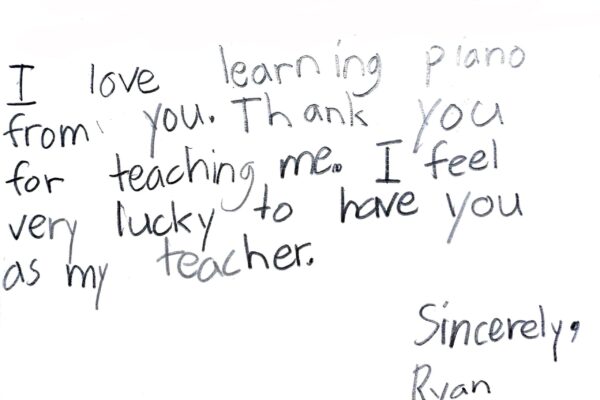 I love learning piano
from you. Thank you
for teaching me. I feel
very lucky to have you
as my teacher.
Sincerely,
Ryan